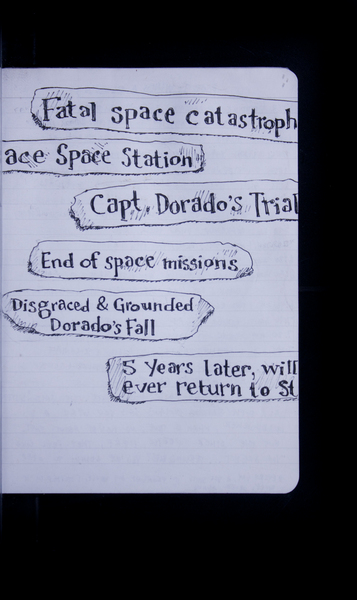 Fatal space catastroph
ace Space Station
Capt. Dorado's Trial
End of space missions
Disgraced & Grounded
Dorado's Fall
5 Years later, will
ever return to St